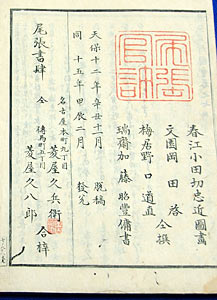 春江小田切忠近圖畫
文園岡田啓
梅居野口道直
仝撰
瑞齋加藤昭豊傭書
天保十二年辛丑十一月 脱稿
同十五年甲辰二月 發兌
尾張書肆
名古屋本町九丁目
菱屋久兵衛
仝傳馬町五丁目
菱屋久八郎
合梓